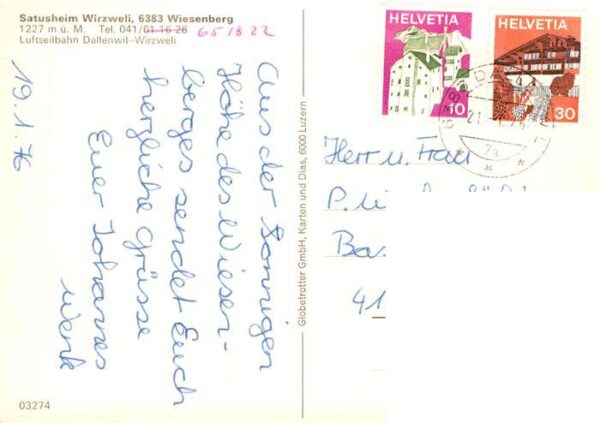 Satusheim Wirzweli, 6383 Wiesenberg
1227 m ü. M. Tel. 041/61 16 26 65 18 22
Luftseilbahn Dallenwil–Wirzweli
19.1.76
Aus der Sonnigen
Höhe des Wiesen-
berges sendet Euch
herzliche Grüsse
Euer Johannes
Wenk
03274
Globetrotter GmbH, Karten und Dias, 6000 Luzern
HELVETIA
10
HELVETIA
30
Herr u. Frau
P.
Ba
41